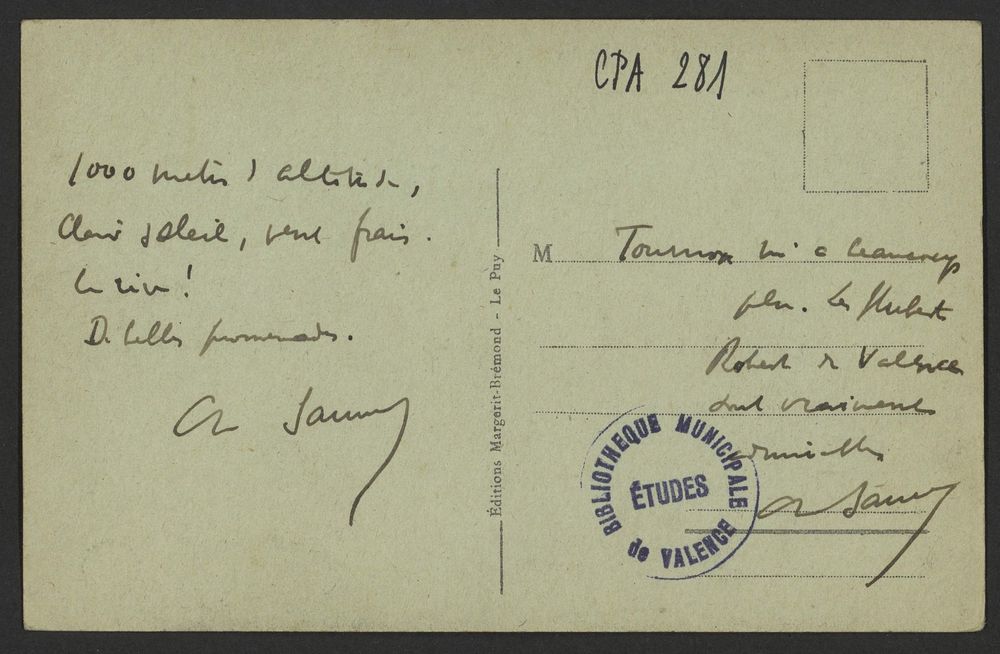 CPA 281
1000 metres d'altitude,
clair soleil, vent frais.
De belles promenades.
Éditions Margerit-Brémond - Le Puy
M Tournon m'a beaucoup
plu. Les Hubert
Robert de Valence
sont vraiment
BIBLIOTHEQUE MUNICIPALE
ÉTUDES
de VALENCE